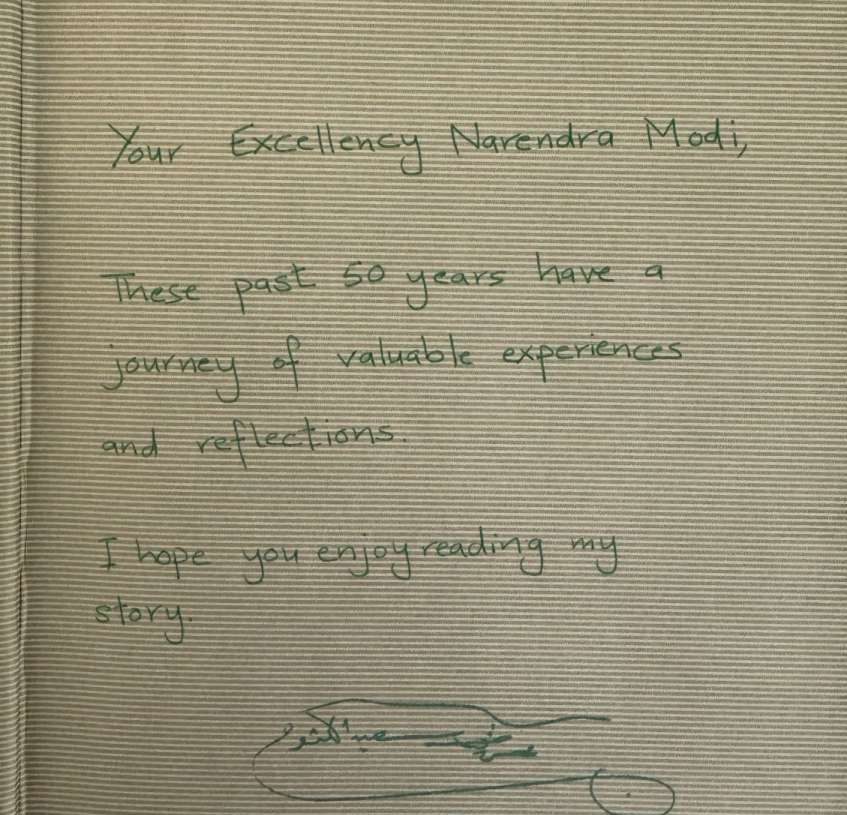 Your Excellency Narendra Modi,
These past 50 years have a
journey of valuable experiences
and reflections.
I hope you enjoy reading my
story.